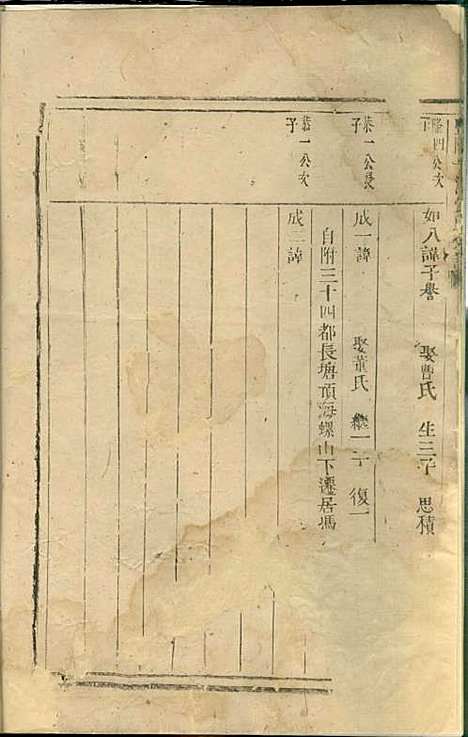 隆四公次子
如八諱子譽 娶曹氏 生三子 思積
恭一公長子
成一諱 娶董氏 繼一子 復一
自附三十四都長塘頂海螺山下遷居馮
恭一公次子
成二諱